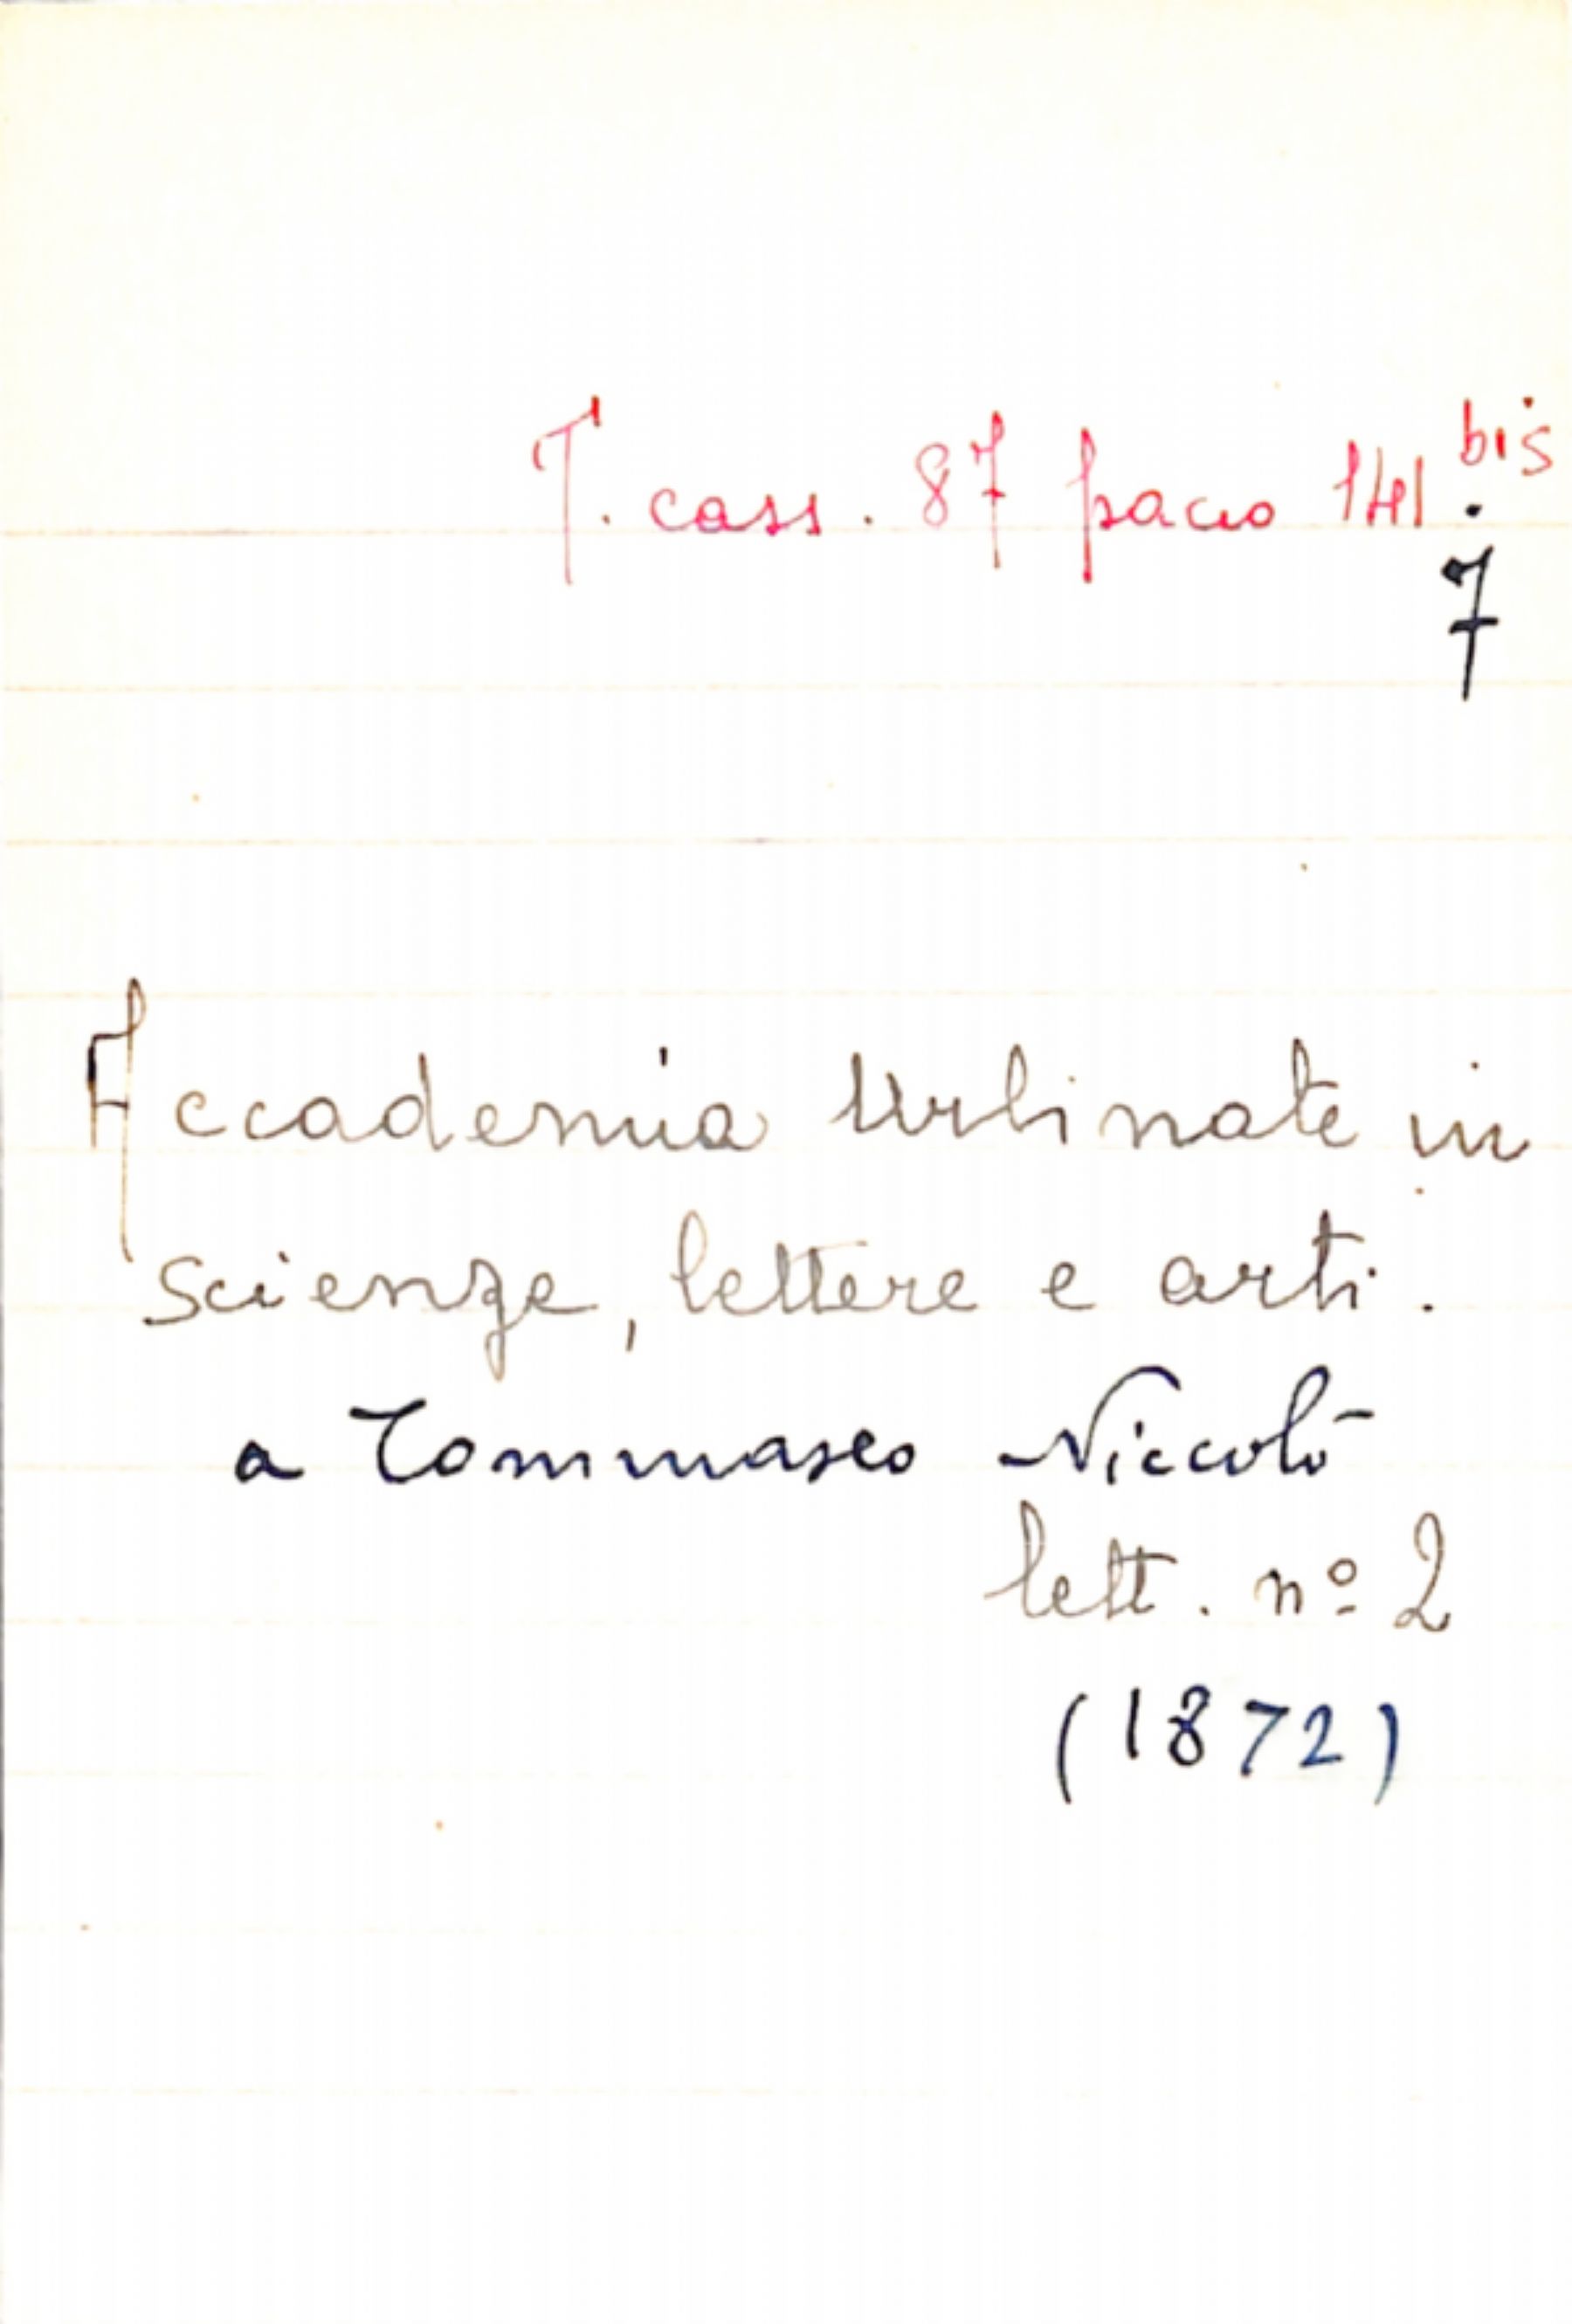 T. cass. 87 pacco 141.bis
7
Accademia Urbinate in
scienze, lettere e arti.
a Tommaseo Niccolò
lett. nº 2
(1872)